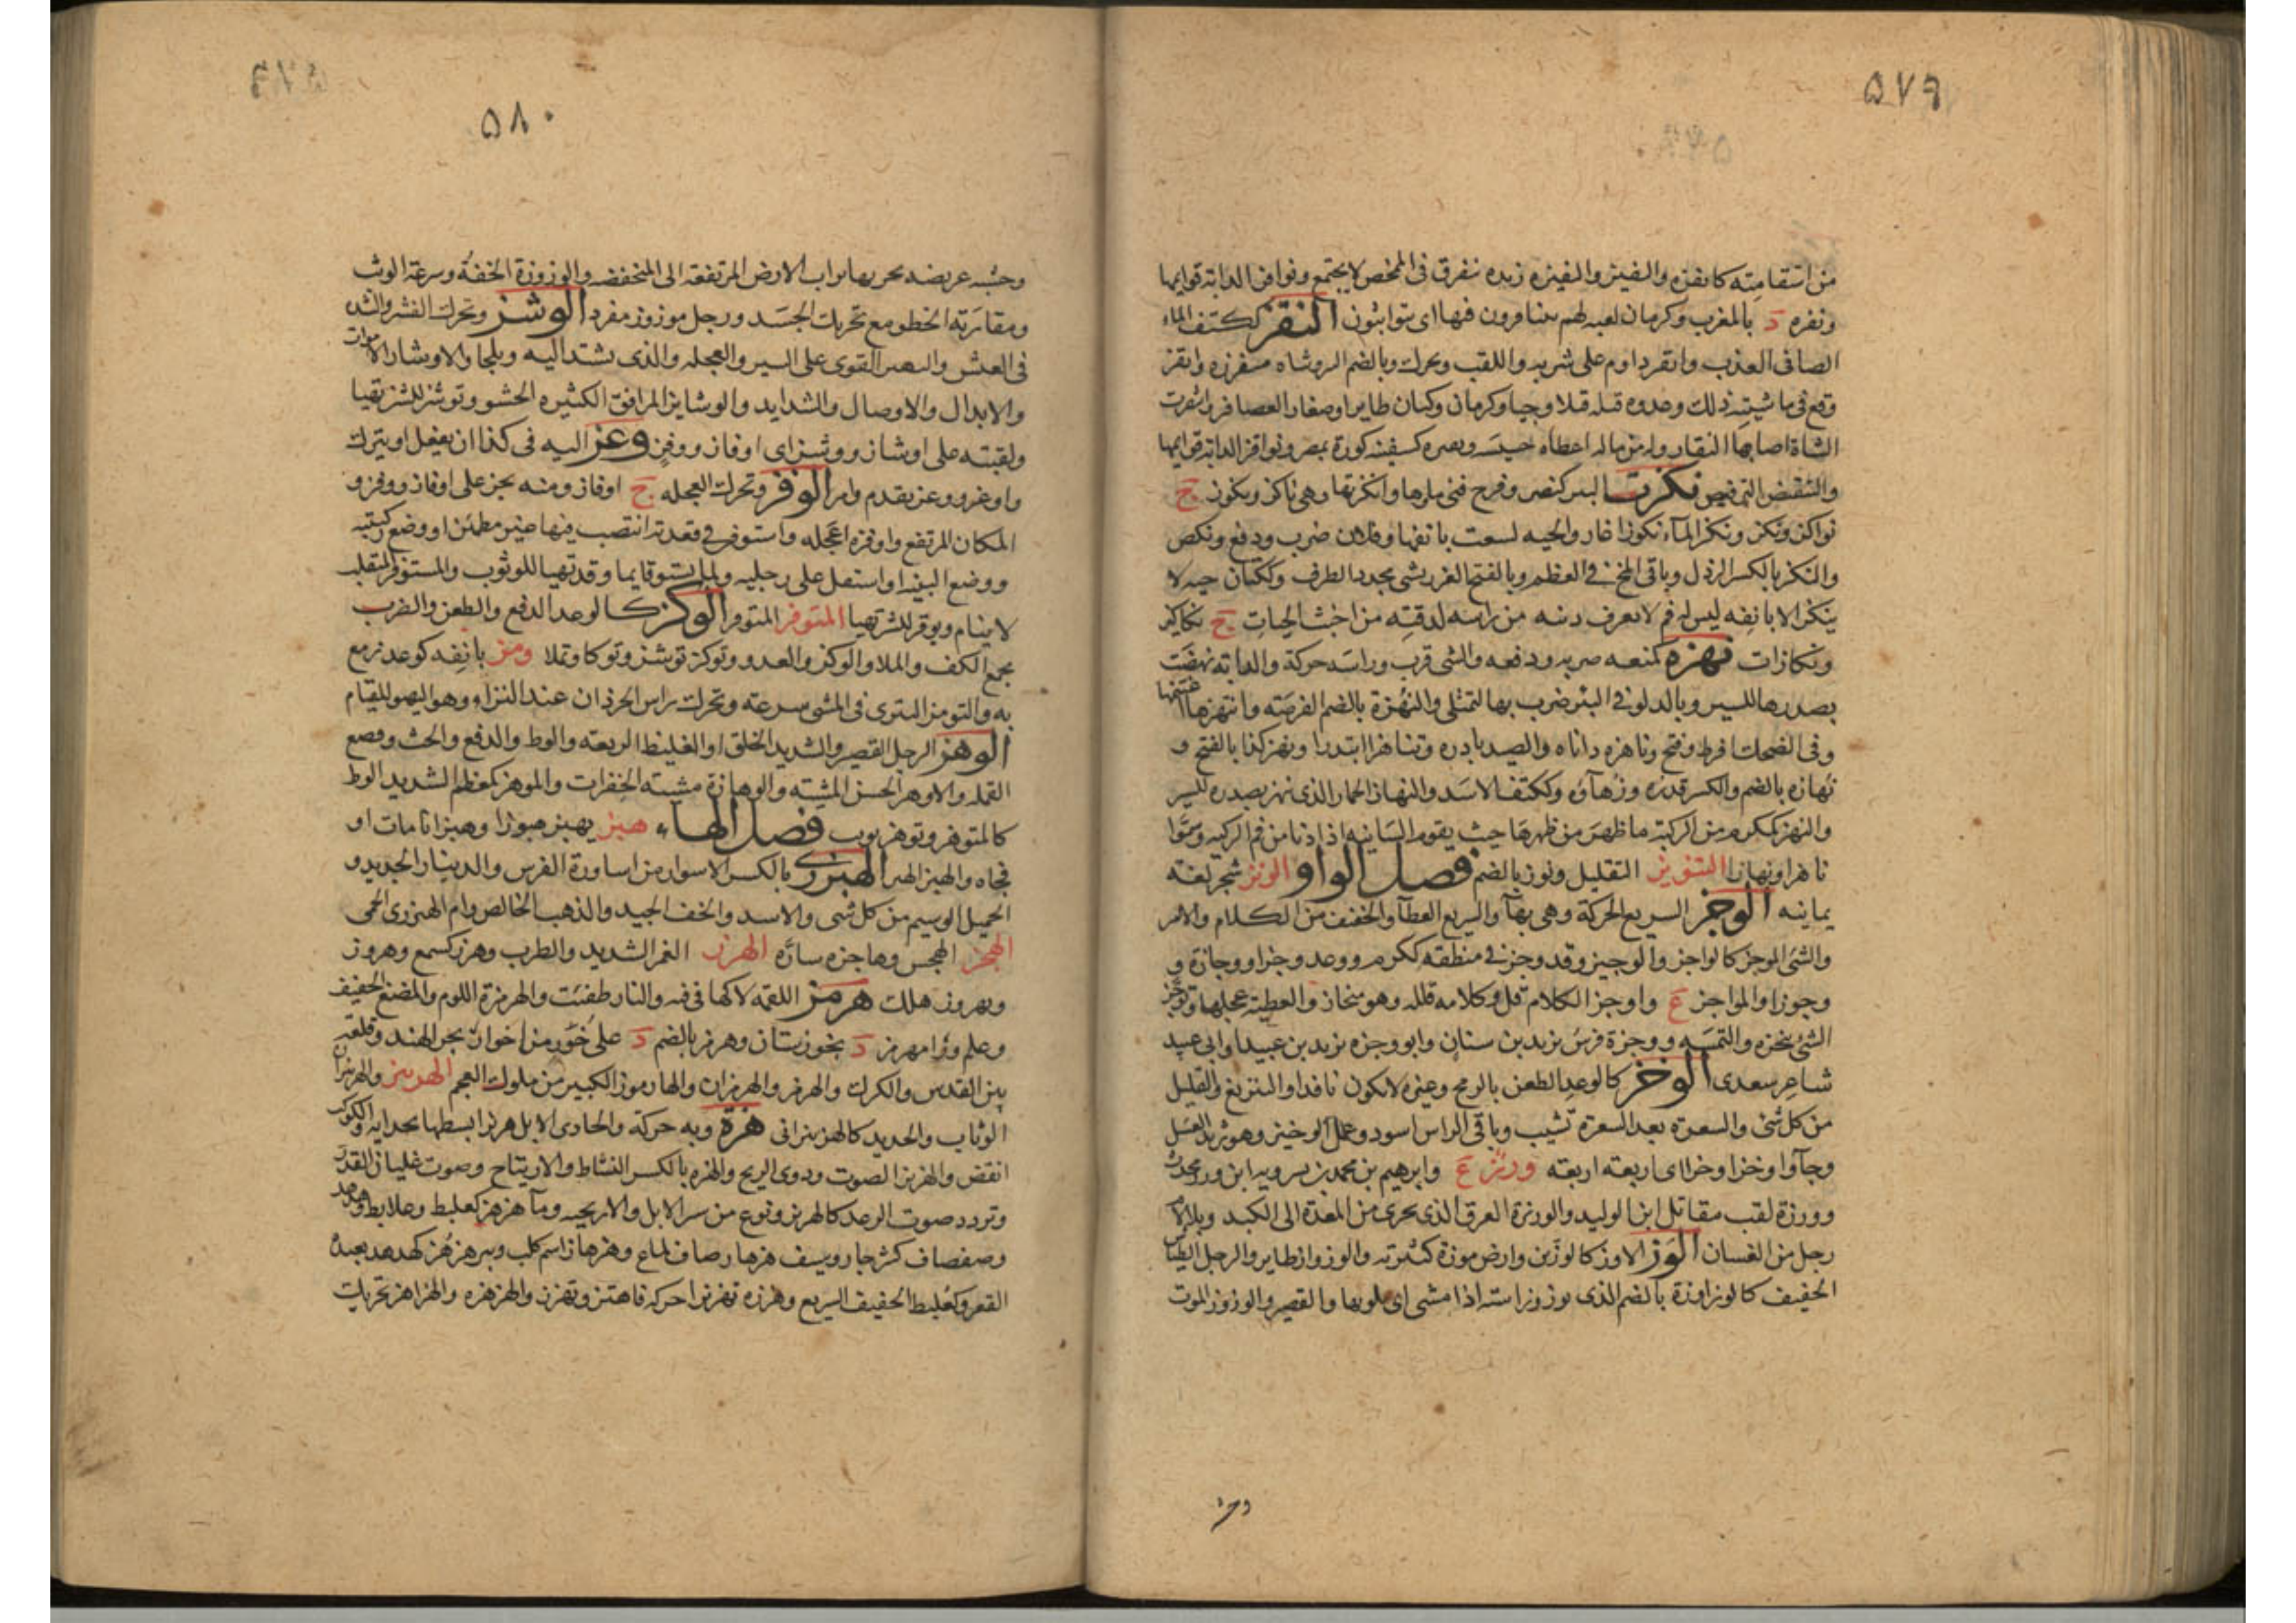 ۵۷۹
من استقامته كانفزه والنفيز والنفيزه زبده تتفرق فى المخض لا يجتمع ونوافز الدابة قوايمها
ونفزه د بالمغرب وكرمان لعبه لهم يتنافزون فيها اى يتواثبون النقز ككتف الماء
الصافى العذب وانقز داوم على شربه واللقب ويحرك وبالضم البئر وشاة منقزة وانقز
الشاة اصابها النقاز وله من ماله اعطاه خسيسه كسفينه كورة بمصر ونواقز الدابة قوايمها
نكزت البئر كنصر وفرح فنى ماوها وانكزتها وهى ناكز ونكوز ج
نواكز ونكز ونكز المآء نكوزا غار والحيه لسعت بانفها وفلان ضرب ودفع ونكص
والنكز بالكسر الرذل وباقى المخ فى العظم وبالفتح الغرز بشى محدد الطرف وككتان حيه لا
ينكز الا بانفه ليس له فم لا يعرف ذنبه من راسه لدقته من اخبث الحيات ج نكاكيز
ونكازات نهزه كمنعه ضربه ودفعه والشى قرب وراسه حركة والدابة نهضت
بصدرها للسير وبالدلو فى البئر ضرب بها لتمتلى والنهزة بالضم الفرصة وانتهزها اغتنمها
وفى الضحك افرط وقبح وناهزه داناه والصيد بادره وتناهزا ابتدرا ونهز كذا بالفتح و
نهازه بالضم والكسر قدره وزهاؤه وككتف الاسد والنهاز الحمار الذى ينهز بصدره للسير
والنهز ككرم من الركية ما ظهر من ظهرها حيث يقوم السانيه اذا دنا من فم الركيه وسموا
ناهزا ونهازا التنويز التقليل ونوز بالضم فصل الواو الونز شجر لغه
يمانيه الوجز السريع الحركة وهى بهآ والسريع العطآ والخفيف من الكلام والامر
والشئ الموجز كالواجز والوجيز وقد وجز فى منطقه ككرم ووعد وجزا ووجازة و
وجوزا والمواجز ع واوجز الكلام قل وكلامه قلله وهو ميجاز والعطية عجلها وتوجز
الشئ تنجزه والتمسه ووجزة فرس يزيد بن سنان وابو وجزه يزيد بن عبيد او ابى عبيد
شاعر سعدى الوخز كالوعد الطعن بالرمح وغيره لا يكون نافذا والتبزيغ والقليل
من كل شئ والشعرة بعد الشعرة تشيب وباقى الراس اسود وعمل الوخيز وهو ثريد العسل
وجآؤا وخزا وخزا اى اربعة اربعة ورز ع وابرهيم بن محمد بن بسرويه ابن ورز محدث
وورزة لقب مقاتل ابن الوليد والورزة العرق الذى يجرى من المعدة الى الكبد
رجل من الغسان الوز الاوز كالوزين وارض موزة كثيرته والوزواز طاير والرجل الطياش
الخفيف كالوزاوزة بالضم الذى يوزوز استه اذا مشى اى يلويها والقصير والوزوز الموت
وخز
۵۸۰
وخشبه عريضه يجر بها تراب الارض المرتفعة الى المنخفضه والوزوزة الخفة وسرعة الوثب
ومقاربة الخطو مع تحريك الجسد ورجل موزوز مغرد الوشز وتحرك النشز والشدة
فى العيش والبعير القوى على السير والعجله والذى يشتد اليه ويلجا والاوشاز الاموات
والابدال والاوصال والشدايد والوشايز المرافق الكثيره الحشو وتوشز للشر تهيا
ولقيته على اوشاز ووشز اى اوفاز ووفز وعز اليه فى كذا ان يفعل او يترك
واوعز ووعز تقدم وامر الوفز وتحرك العجله ج اوفاز ومنه نحن على اوفاز ووفز و
المكان المرتفع واوفزه اعجله واستوفز فى قعدته انتصب فيها غير مطمئن او وضع ركبتيه
ووضع اليتيه او استقل على رجليه ولما يستو قايما وقد تهيا للوثوب والمستوفز المتقلب
لا ينام وتوفز للشر تهيا المتوقز المتوفز الوكز كالوعد الدفع والطعن والضرب
بجمع الكف والملا والوكز والعدو وتوكز توشز وتوكا وتملا ومز بانفه كوعد رمع
به والتومز التنزى فى المشى سرعة وتحرك راس الجرذان عند النزاء وهو التهيو للقيام
الوهز الرجل القصير والشديد الخلق او الغليظ الربعه والوط والدفع والحث وقصع
القمله والاوهز الحسن المشيه والوهازة مشية الخفرات والموهز كمعظم الشديد الوط
كالمتوهز وتوهز توثب فصل الهاء هبز يهبز هبوزا وهبزا مات او
فجاه والهبز الهبر الهبزرى بالكسر الاسوار من اساورة الفرس والدينار الجديد و
الجميل الوسيم من كل شئ والاسد والخف الجيد والذهب الخالص وام الهبزرى الحمى
الهجز الهجس وهاجزه ساره الهرز الغمز الشديد والضرب وهرز كسمع وهروز
وتهروز هلك هرمز اللقمة لاكها فى فيه والنار طفئت والهرمزة اللوم والمضغ الخفيف
وعلم ورامهرمز د بخوزستان وهرمز بالضم د على خور من اخوار بحر الهند وقلعة
بين القدس والكرك والهرمز والهرمزان والهارموز الكبير من ملوك العجم الهزبز والهزبزان
الوثاب والحديد كالهزنبزانى هزة وبه حركة والحادى الابل هزيزا بسطها بحدايه والكوكب
انقض والهزيز الصوت ودوى الريح والهزه بالكسر النشاط والارتياح وصوت غليان القدر
وتردد صوت الرعد كالهزيز ونوع من سير الابل والاريحيه ومآ هزهز كعلبط وعلابط وهدهد
وصفصاف كثير جار وسيف هزهاز صاف لماع وهزهاز اسم كلب وبير هزهز كهدهد بعيدة
القعر وكعلبط الخفيف السريع وهززه تهزيزا حركه فاهتز وتهزز والهزهزه والهزاهز تحريك